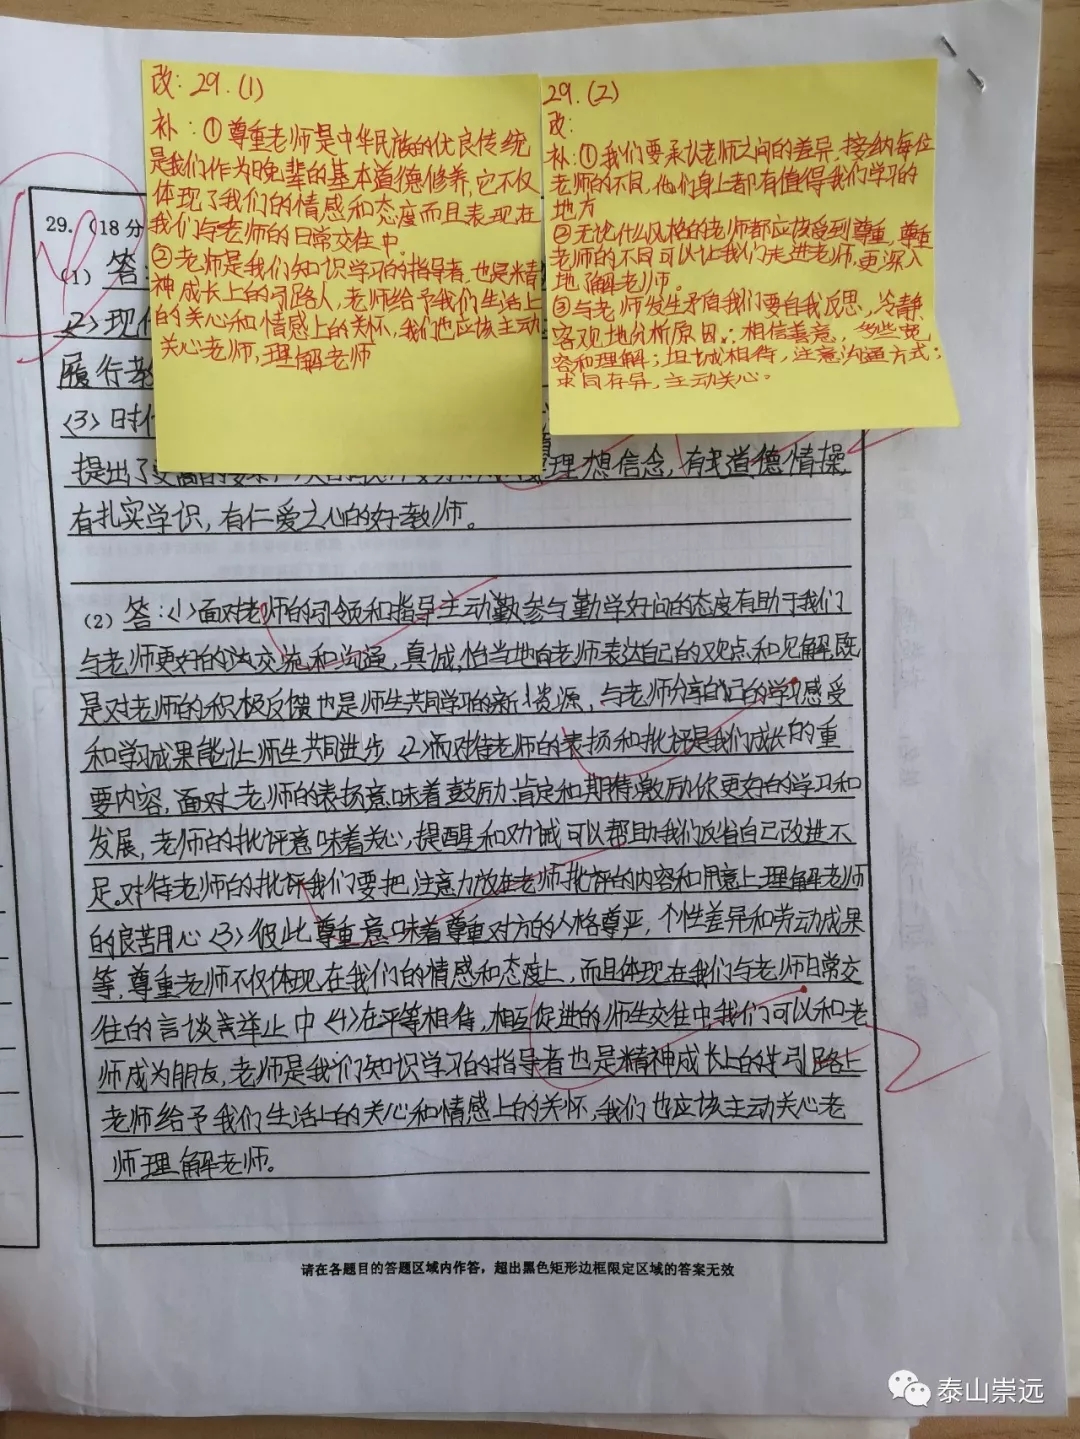 改：29.(1)
补：①尊重老师是中华民族的优良传统
是我们作为晚辈的基本道德修养，它不仅
体现了我们的情感和态度而且表现在
我们与老师的日常交往中
②老师是我们知识学习的指导者，也是精
神成长上的引路人，老师给予我们生活上
的关心和情感上的关怀，我们也应该主动
关心老师，理解老师
29.(2)
改：
补：①我们要承认老师之间的差异，接纳每位
老师的不同，他们身上都有值得我们学习的
地方
②无论什么风格的老师都应该受到尊重，尊重
老师的不同可以让我们走进老师，更深入
地了解老师。
③与老师发生矛盾我们要自我反思，冷静
客观地分析原因；相信善意，多些宽
容和理解；坦诚相待，注意沟通方式；
求同存异，主动关心。
29.（18分
(1) 答：
(2)现代
履行教
(3)时代
提出了更高的要求，理想信念，有道德情操
有扎实学识，有仁爱之心的好教师。
(2) 答：(1)面对老师的引领和指导主动勤参与勤学好问的态度有助于我们
与老师更好的交流和沟通，真诚，恰当地向老师表达自己的观点和见解，既
是对老师的积极反馈也是师生共同学习的新资源，与老师分享自己的学习感受
和学习成果能让师生共同进步(2)面对待老师的表扬和批评是我们成长的重
要内容，面对老师的表扬意味着鼓励，肯定和期待，激励你更好的学习和
发展，老师的批评意味着关心，提醒和劝诫可以帮助我们反省自己改进不
足。对待老师的批评我们要把注意力放在老师批评的内容和用意上理解老师
的良苦用心(3)彼此尊重意味着尊重对方的人格尊严，个性差异和劳动成果
等，尊重老师不仅体现在我们的情感和态度上，而且体现在我们与老师日常交
往的言谈举止中(4)在平等相待，相互促进的师生交往中，我们可以和老
师成为朋友，老师是我们知识学习的指导者也是精神成长上的引路上
老师给予我们生活上的关心和情感上的关怀，我们也应该主动关心老
师理解老师。
请在各题目的答题区域内作答，超出黑色矩形边框限定区域的答案无效
泰山崇远